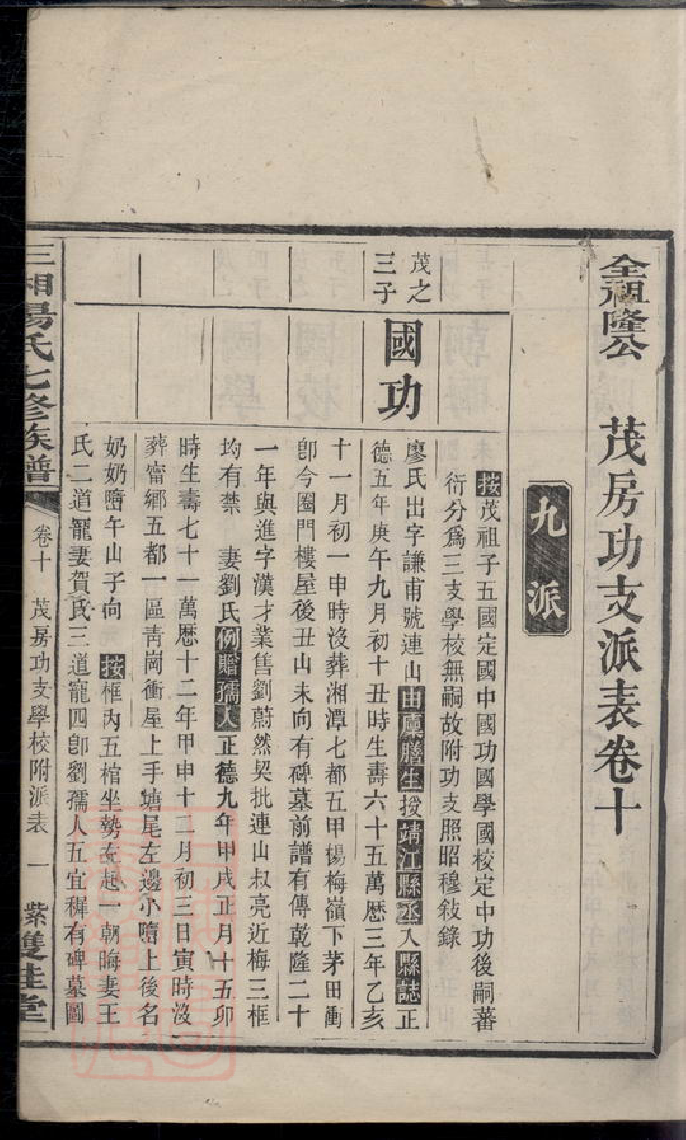 全祖隆公 茂房功支派表卷十
九派
按茂祖子五國定國中國功國學國校定中功後嗣蕃
衍分爲三支學校無嗣故附功支照昭穆敍錄
茂之
三子
國功
廖氏出字謙甫號連山由廩膳生授靖江縣丞入縣誌正
德五年庚午九月初十丑時生壽六十五萬歷三年乙亥
十一月初一申時沒葬湘潭七都五甲楊梅嶺下茅田衝
卽今圈門樓屋後丑山未向有碑墓前譜有傳乾隆二十
一年與進字漢才業售劉蔚然契批連山叔亮近梅三框
均有禁 妻劉氏例贈孺人正德九年甲戌正月十五卯
時生壽七十一萬歷十二年甲申十二月初三日寅時沒
葬甯鄉五都一區靑崗衝屋上手塘尾左邊小嘴上後名
奶奶嘴午山子向 按框內五棺坐勢左起一朝晦妻王
氏二道寵妻賀氏三道寵四卽劉孺人五宜穉有碑墓圖
三湘湯氏七修族譜 卷十 茂房功支學校附派表 一 紫雙桂堂